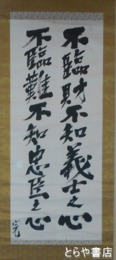 不臨財不知義士之心
不臨難不知忠臣之心
とらや書店